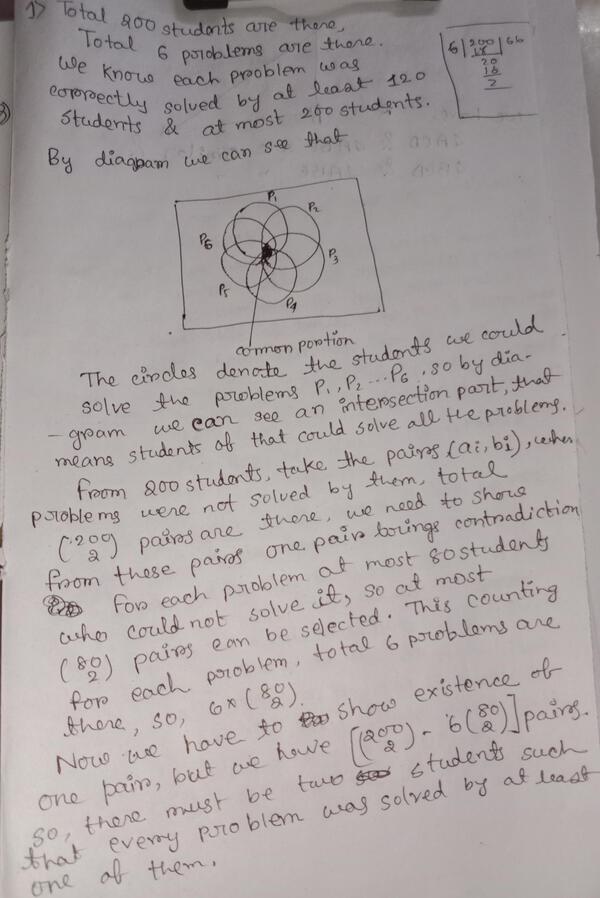 1) Total 200 students are there,
Total 6 problems are there.
We know each problem was
correctly solved by at least 120
students & at most 200 students.
6 | 200 | 66
18
20
18
2
By diagram we can see that
P1
P2
P6
P3
P5
P4
common portion
The circles denote the students we could
solve the problems P1, P2 ... P6, so by dia-
-gram we can see an intersection part, that
means students of that could solve all the problems.
From 200 students, take the pairs (ai, bi), when
problems were not solved by them, total
(200 2) pairs are there, we need to show
from these pairs one pair brings contradiction
For each problem at most 80 students
who could not solve it, so at most
(80 2) pairs can be selected. This counting
for each problem, total 6 problems are
there, so, 6 × (80 2).
Now we have to show existence of
one pair, but we have [(200 2) - 6(80 2)] pairs.
So, there must be two students such
that every problem was solved by at least
one of them.